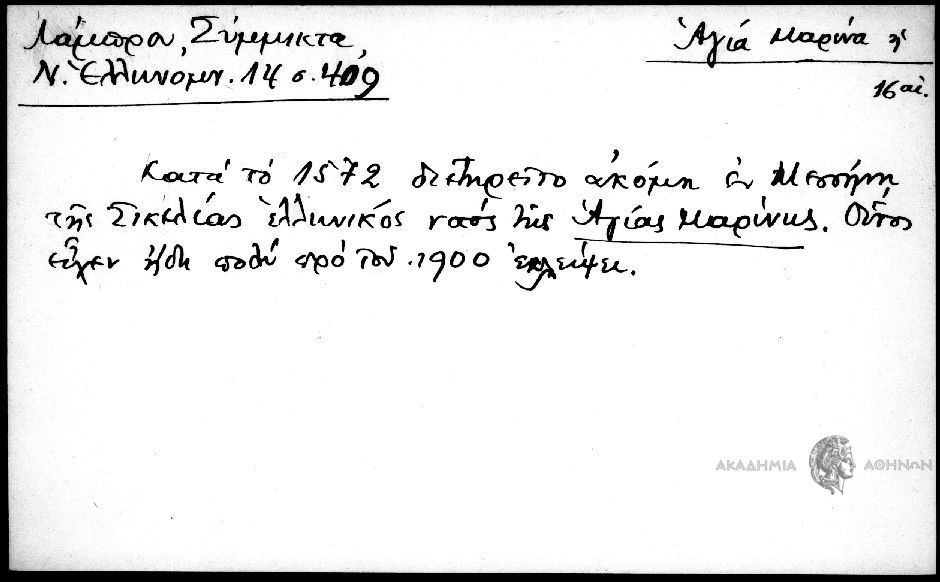 Λάμπρου, Σύμμικτα,
Ν. Ἑλληνομν. 14 σ. 409
Ἁγιά Μαρίνα ἡ
16 αἰ.
Κατά τό 1572 διετηρεῖτο ἀκόμη ἐν Μεσσήνῃ
τῆς Σικελίας ἑλληνικός ναός τῆς Ἁγίας Μαρίνης. Οὗτος
εἶχεν ἤδη πολύ πρό τοῦ 1900 ἐκλείψει.
ΑΚΑΔΗΜΙΑ ΑΘΗΝΩΝ